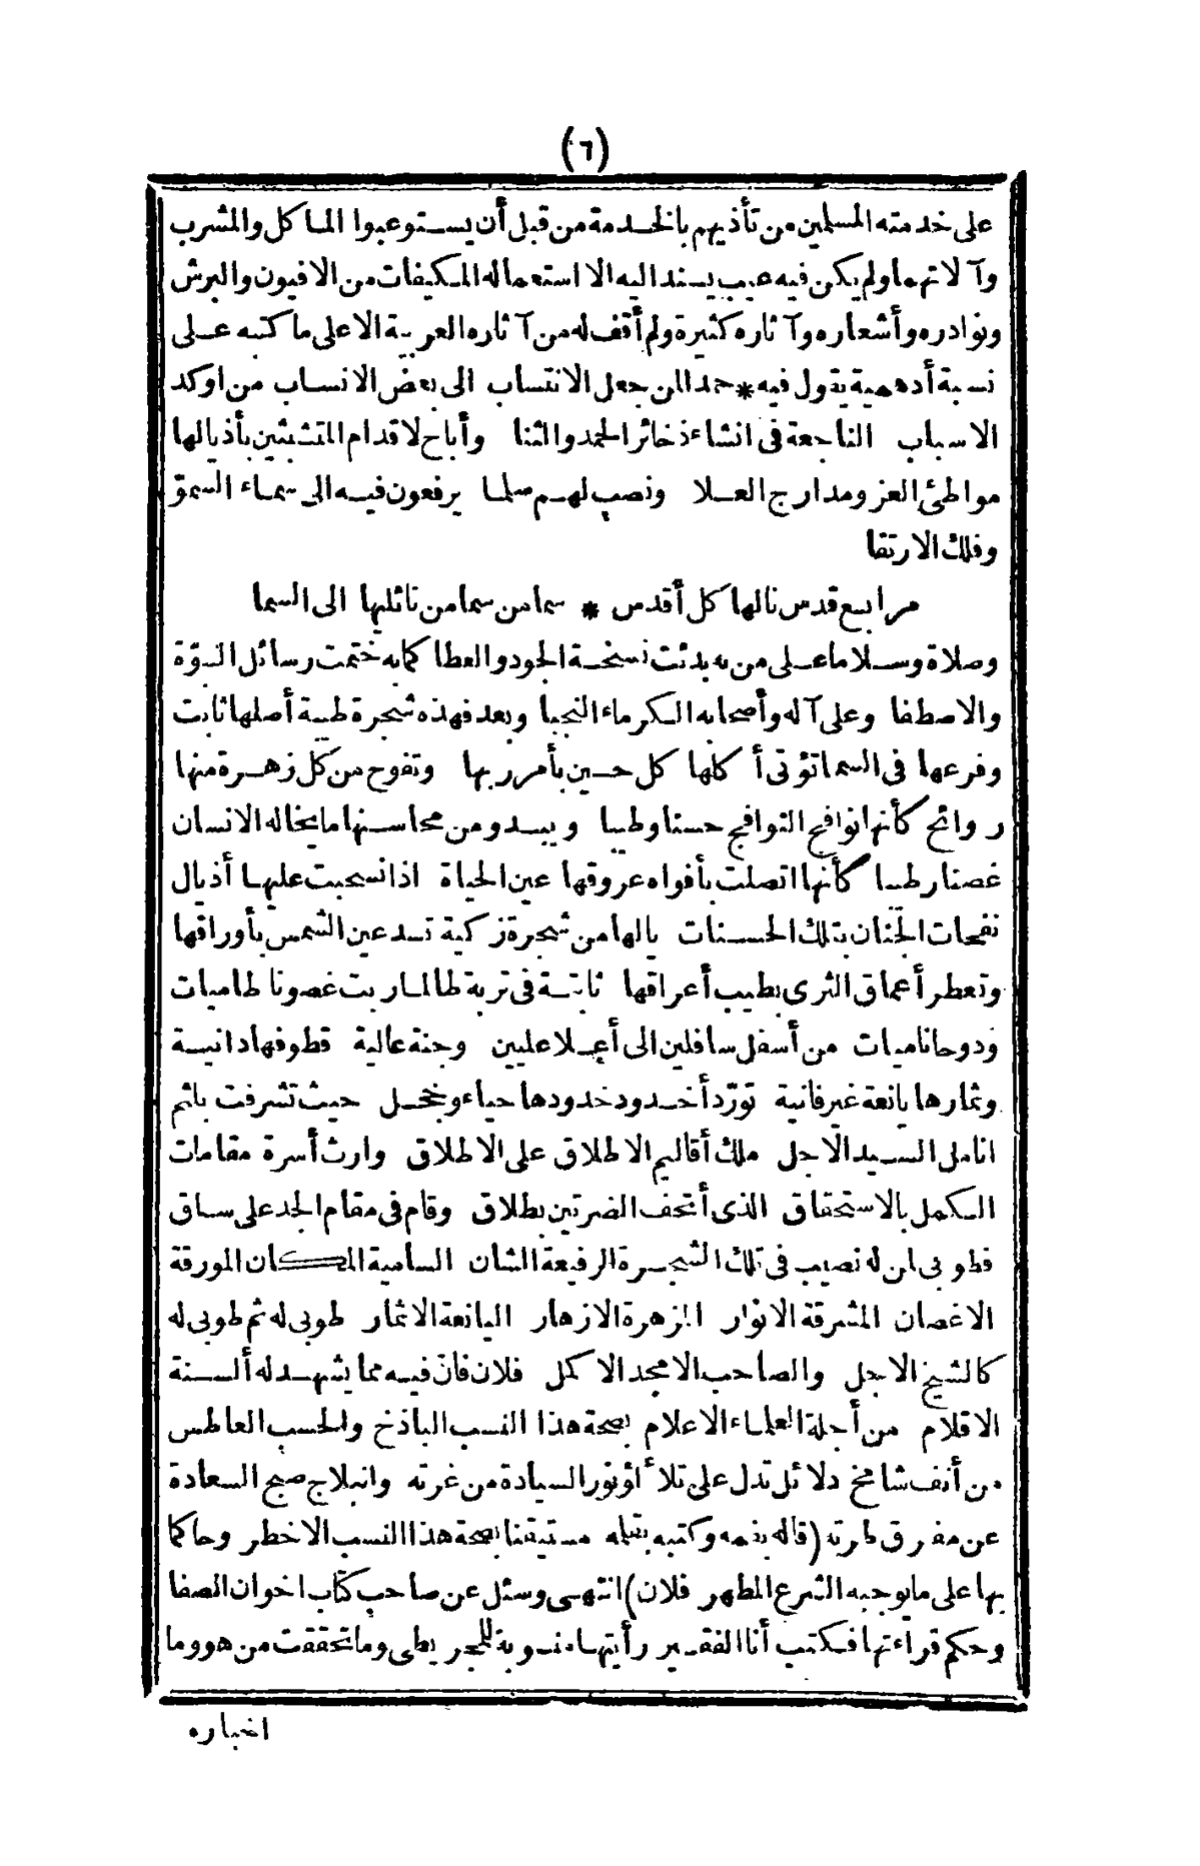 (٦)
على خدمته المسلمين من تأذيهم بالخدمة من قبل أن يستوعبوا الماكل والمشرب
وآلاتهما ولم يكن فيه عيب يسند اليه الا استعماله المكيفات من الافيون والبرش
ونوادره وأشعاره وآثاره كثيرة ولم أقف له من آثاره العربية الا على ما كتبه على
نسبة أدهمية يقول فيه * حمدا لمن جعل الانتساب الى بعض الانساب من اوكد
الاسباب الناجعة فى انشاء ذخائر الحمد والثنا وأباح لاقدام المتشبثين بأذيالها
مواطئ العز ومدارج العلا ونصب لهم سلما يرفعون فيه الى سماء السمو
وفلك الارتقا
مرابع قدس نالها كل أقدس * سما من سما من نائليها الى السما
وصلاة وسلاما على من به بدئت نسخة الجود والعطا كما به ختمت رسائل النبوّة
والاصطفا وعلى آله وأصحابه الكرماء النجبا وبعد فهذه شجرة طيبة أصلها ثابت
وفرعها فى السما تؤتى أكلها كل حين بأمر ربها وتفوح من كل زهرة منها
روائح كأنها نوافج النوافج حسنا وطيبا ويبدو من محاسنها ما يخاله الانسان
غصنا رطيبا كأنها اتصلت بأفواه عروقها عين الحياة اذا نسجبت عليها أذيال
نفحات الجنان بتلك الحسنات يالها من شجرة زكية تسد عين الشمس بأوراقها
وتعطر أعماق الثرى بطيب أعراقها ثابتة فى تربة طالما ربت غصونا طاميات
ودوحا ناميات من أسفل سافلين الى أعلا عليين وجنة عالية قطوفها دانية
وثمارها يانعة غير فانية تورّد أخدود خدودها حياء وخجل حيث تشرفت بلثم
انامل السيد الاجل ملك أقاليم الاطلاق على الاطلاق وارث أسرة مقامات
الكمل بالاستحقاق الذى أتحف الضرتين بطلاق وقام فى مقام الجد على ساق
فطوبى لمن له نصيب فى تلك الشجرة الرفيعة الشان السامية المكان المورقة
الاغصان المشرقة الانوار المزهرة الازهار اليانعة الاثمار طوبى له ثم طوبى له
كالشيخ الاجل والصاحب الامجد الاكمل فلان فان فيه مما يشهد له ألسنة
الاقلام من أجلة العلماء الاعلام بصحة هذا النسب الباذخ والحسب العاطس
من أنف شامخ دلائل تدل على تلألؤ نور السيادة من غرته وانبلاج صبح السعادة
عن مفرق طرته (قاله بفمه وكتبه بقلمه مستيقنا بصحة هذا النسب الاخطر وحاكما
بها على ما يوجبه الشرع المطهر فلان) انتهى وسئل عن صاحب كتاب اخوان الصفا
وحكم قراءتها فكتب أنا الفقير رأيتها منسوبة للمجريطى وما تحققت من هو وما
اخباره